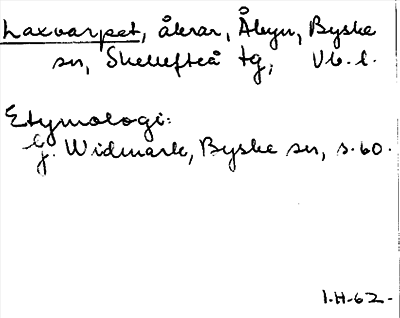 Laxvarpet, åkrar, Åbyn, Byske
sn, Skellefteå tg, Vb. l.
Etymologi:
Jf. Widmark, Byske sn, s. 60.
I.H-62-